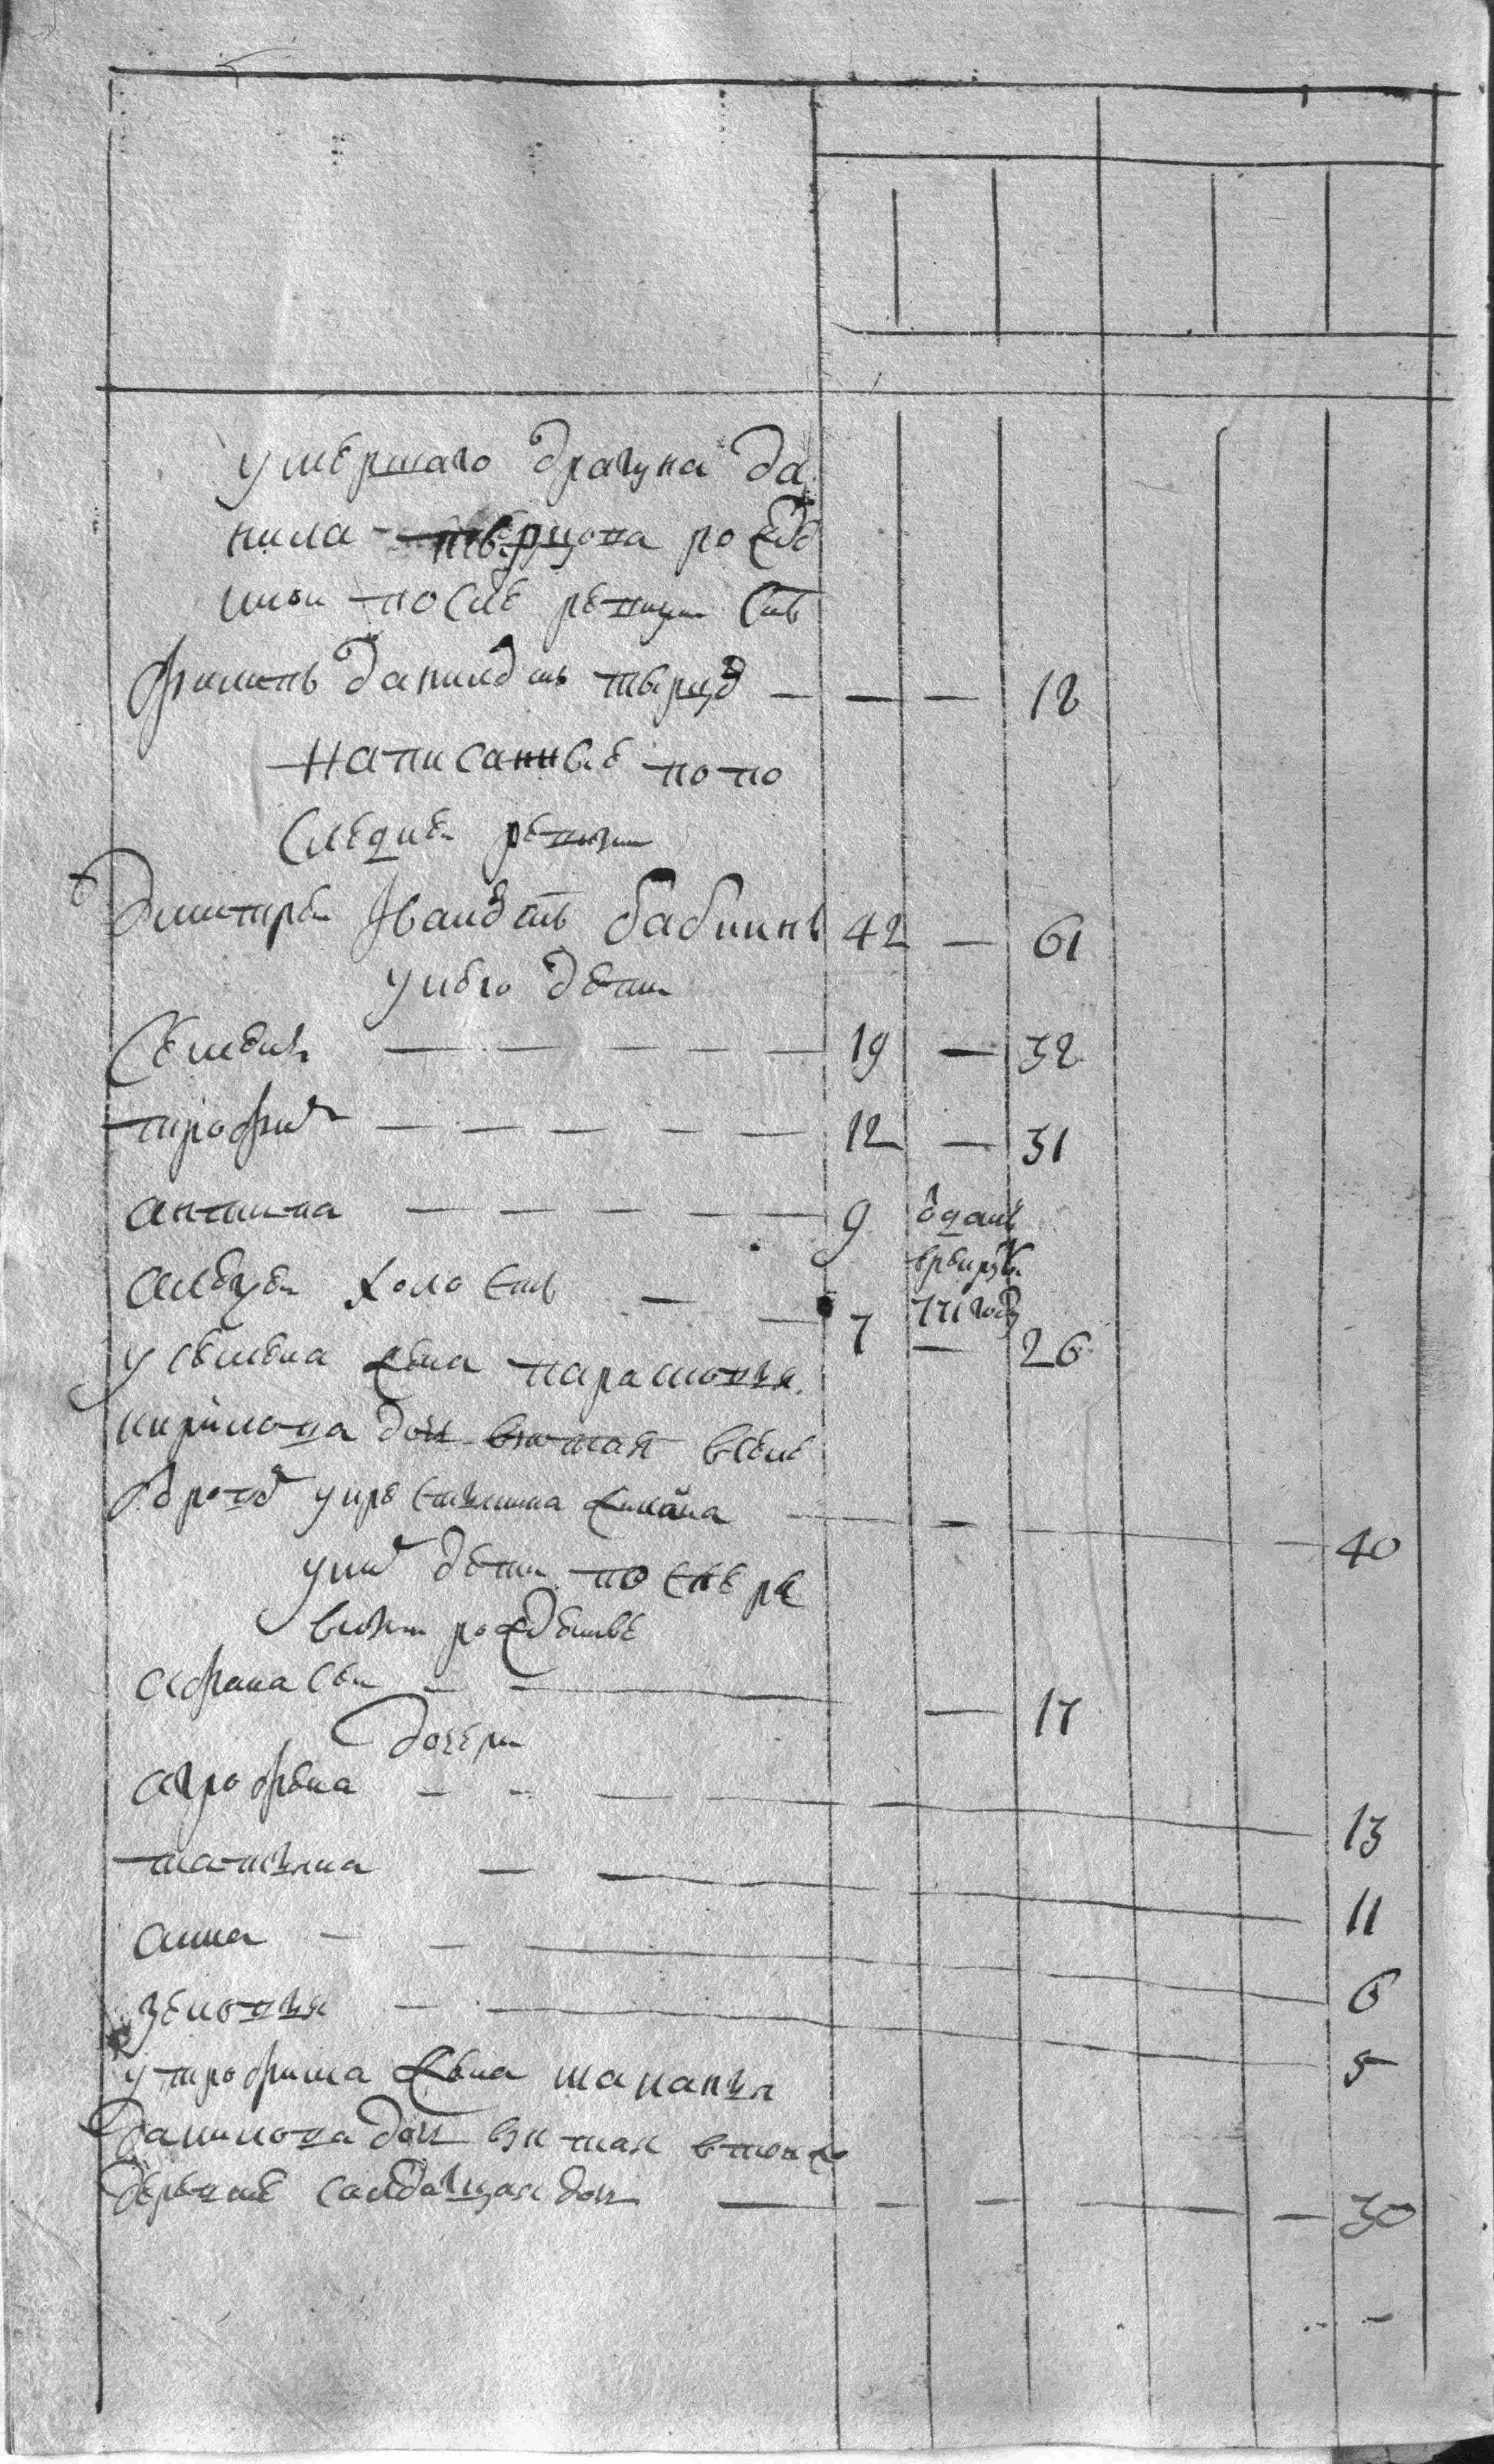 умершаго драгуна да
нила тверцова рожде
ной после ревизи сынъ
Филипъ даниловъ сынъ тверцовъ — — — 18
написанные по по
следней ревизи
Дмитрей Ивановъ сынъ бабкинъ 42 — 61
у него дети
Семенъ — — — — — 19 — 32
трофим — — — — — 12 — 31
антипа — — — — — 9 отданъ
в рекруты
771 году
алексей холостъ — — 7 — 26
у семена жена парасковья
кирилова дочь взятая в селе
у крестьянина — — — 40
у них дети после ре
визи рожденые
афанасей — — — 17
дочери
агрофена — — — 13
татьяна — — — 11
анна — — — 6
зеновья — — — 5
у трофима жена маланья
данилова дочь взятая в той же
деревне салдацкая дочь — — — — — 30